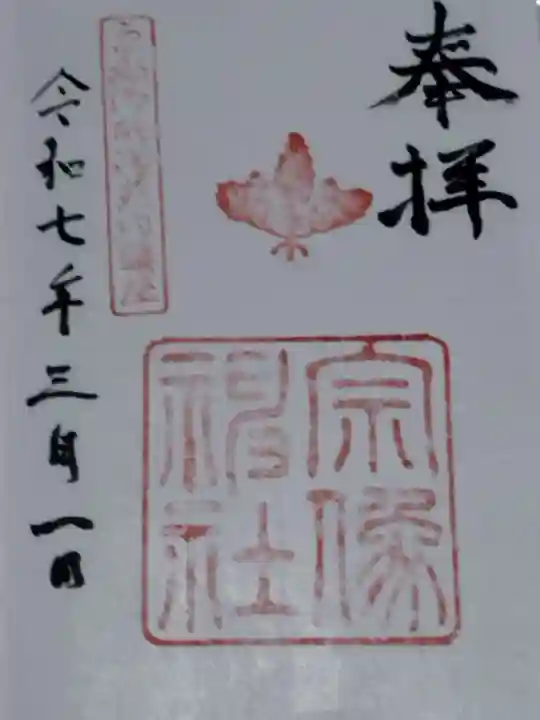 奉拝
宗像
神社
令和七年三月一日